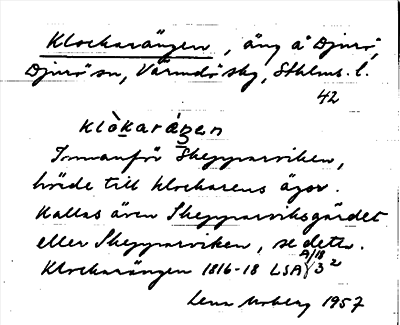 Klockarängen, äng å Djurö,
Djurö sn, Värmdö skg, Sthlms. l.
42
klòkaráŋen
Innanför Skepparviken,
hörde till klockarens ägor.
Kallas även Skepparviksgärdet
eller Skepparviken, se detta.
Klockarängen 1816-18 LSA A/18 3²
Lena Moberg 1957